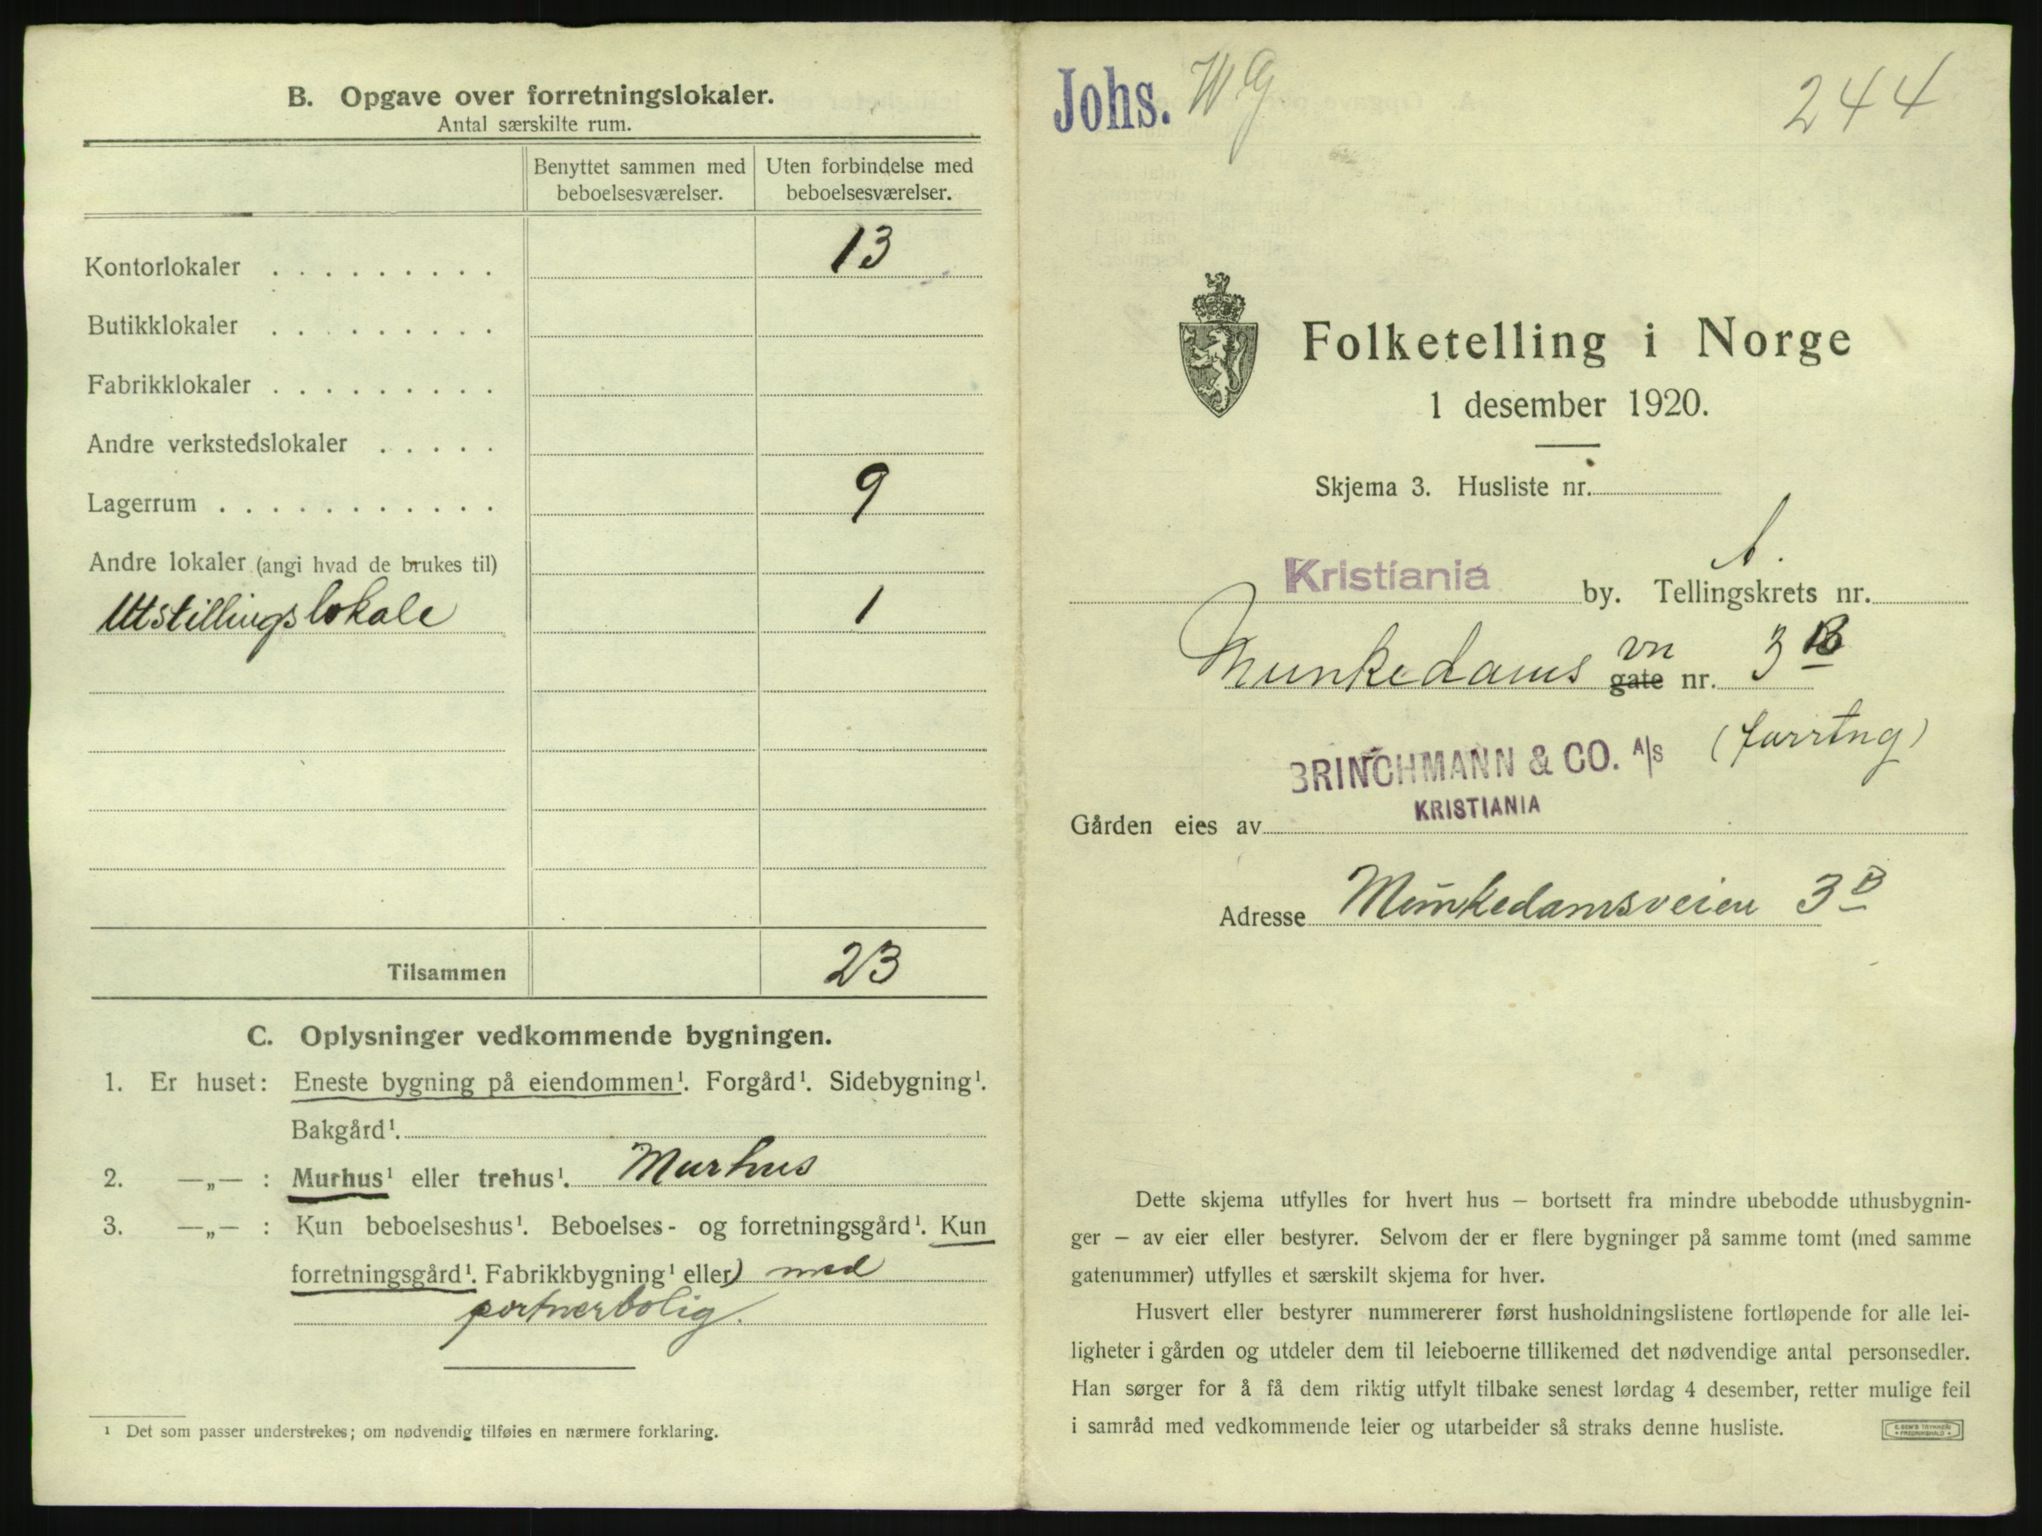 B. Opgave over forretningslokaler.
Antal særskilte rum.
Benyttet sammen med beboelsesværelser.
Uten forbindelse med beboelsesværelser.
Kontorlokaler . . . . . . . . . 13
Butikklokaler . . . . . . . . .
Fabrikklokaler . . . . . . . . .
Andre verkstedslokaler . . . . .
Lagerrum . . . . . . . . . . . 9
Andre lokaler (angi hvad de brukes til)
Utstillingslokale 1
Tilsammen 23
C. Oplysninger vedkommende bygningen.
1. Er huset: Eneste bygning på eiendommen¹. Forgård¹. Sidebygning¹.
Bakgård¹.
2. —„— : Murhus¹ eller trehus¹. Murhus
3. —„— : Kun beboelseshus¹. Beboelses- og forretningsgård¹. Kun
forretningsgård¹. Fabrikkbygning¹ eller) med
portnerbolig.
¹ Det som passer understrekes; om nødvendig tilføies en nærmere forklaring.
Johs. W G 244
Folketelling i Norge
1 desember 1920.
Skjema 3. Husliste nr.
Kristiania by. Tellingskrets nr. A.
Munkedams gate vn nr. 3 B
(forrtng)
BRINCHMANN & CO. A/S
KRISTIANIA
Gården eies av
Adresse Munkedamsveien 3 B
Dette skjema utfylles for hvert hus – bortsett fra mindre ubebodde uthusbygnin-
ger – av eier eller bestyrer. Selvom der er flere bygninger på samme tomt (med samme
gatenummer) utfylles et særskilt skjema for hver.
Husvert eller bestyrer nummererer først husholdningslistene fortløpende for alle lei-
ligheter i gården og utdeler dem til leieboerne tillikemed det nødvendige antal personsedler.
Han sørger for å få dem riktig utfylt tilbake senest lørdag 4 desember, retter mulige feil
i samråd med vedkommende leier og utarbeider så straks denne husliste.